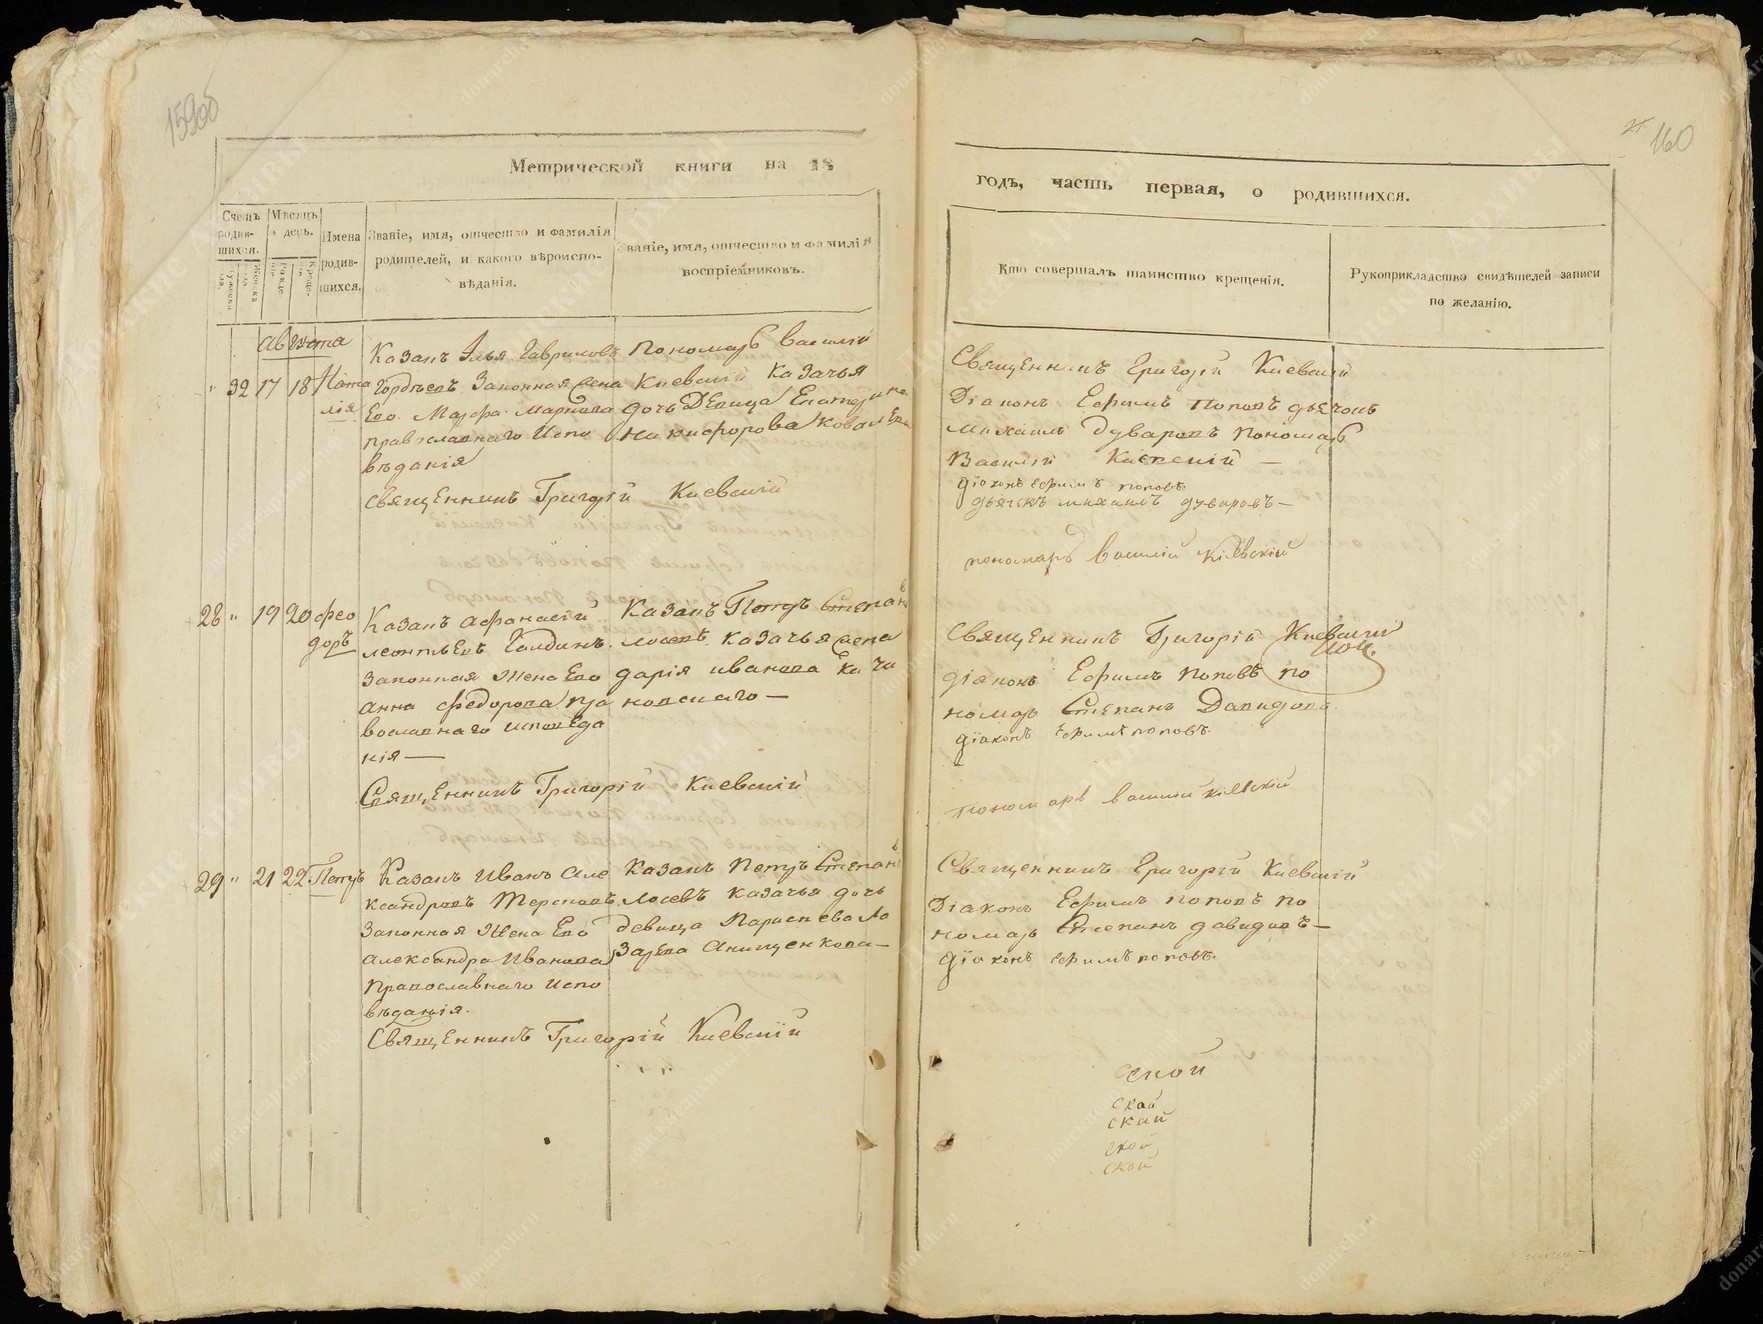 159об
160
Метрической книги на 18
годъ, часть первая, о родившихся.
Счетъ родив-шихся.
Мѣсяцъ и день.
Имена родив-шихся.
Званіе, имя, отчество и фамилія
родителей, и какого вѣроиспо-
вѣданія.
Званіе, имя, отчество и фамилія
воспріемниковъ.
Кто совершалъ таинство крещенія.
Рукоприкладство свидѣтелей записи
по желанію.
Августа
" 32 17 18 Ната
лія
Казакъ Илья Гавриловъ
Гордѣевъ Законная жена
Его Марфа Маркова
православнаго Испо
вѣданія
Священникъ Григорій Киевскій
Пономарь василій
Киевскій Казачья
дочь Девица Екатерина
Никифорова Ковалева
Священникъ Григорій Киевскій
Діаконъ Ефимъ Поповъ дьячокъ
Михаилъ Дуваровъ Пономарь
Василій Киевскій —
діаконъ ефимъ поповъ
дьячекъ михаилъ дуваровъ —
пономарь василій кіевскій
28 " 19 20 Фео
доръ
Казакъ Афанасій
леонтьевъ Голдинъ
Законная Жена Его
анна федорова пра
вославнаго исповеда
нія —
Священникъ Григорій Киевскій
Казакъ Петръ Степан
лосевъ Казачья жена
дарія иванова Ка
новскаго —
Священникъ Григорій Киевскій
діаконъ Ефимъ Поповъ по
номарь Степанъ Давидовъ
діаконъ ефимъ поповъ.
пономарь василий киевский
29 " 21 22 Петръ
Казакъ Иванъ Але
ксандровъ Терсковъ
Законная Жена Его
александра Иванова
Православнаго Испо
вѣданія.
Священникъ Григорій Киевскій
Казакъ Петръ Степан
Лосевъ Казачья дочь
девица Параскева Ла
Зарева Анищенкова —
Священникъ Григорій Киевскій
Діаконъ Ефимъ Поповъ по
номарь Степанъ давидовъ —
діаконъ ефимъ поповъ.
ской
ской
ской
ской
donarch.ru